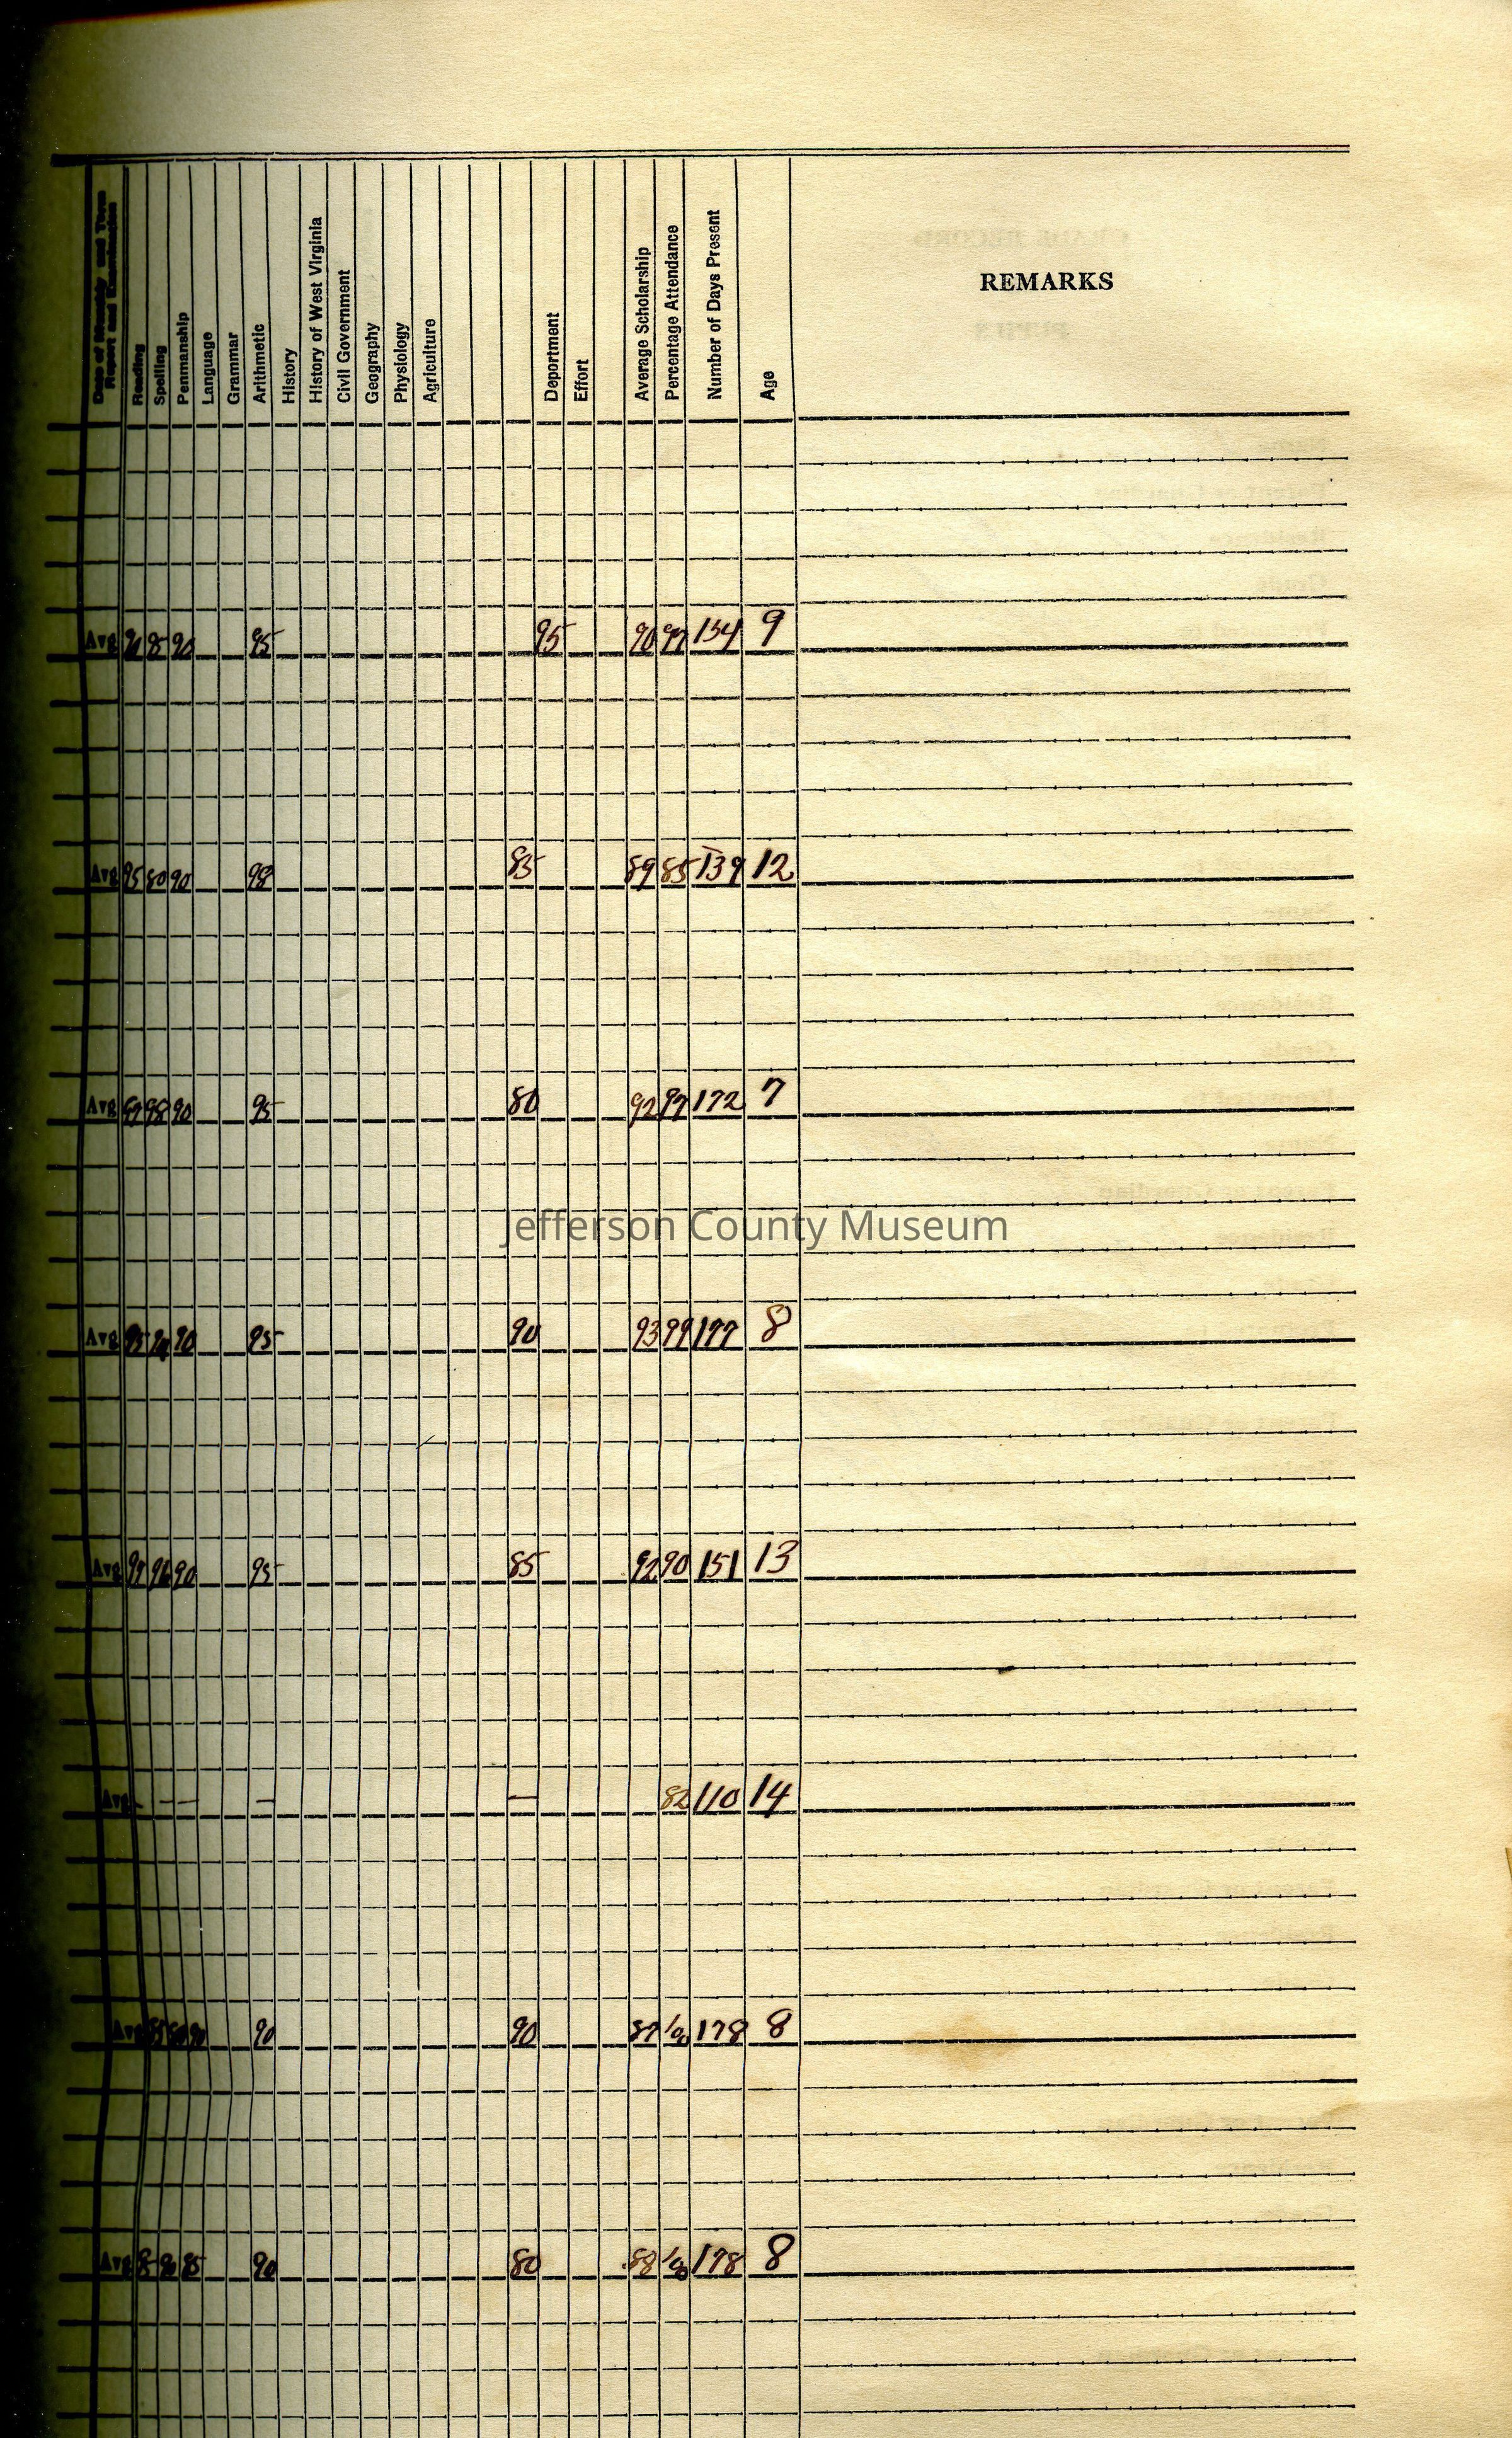 Date of Monthly and Term Report and Examination
Reading
Spelling
Penmanship
Language
Grammar
Arithmetic
History
History of West Virginia
Civil Government
Geography
Physiology
Agriculture
Deportment
Effort
Average Scholarship
Percentage Attendance
Number of Days Present
Age
REMARKS
Avg 90 95 95 90 134 9
Avg 95 80 90 98 85 89 85 139 12
Avg 98 90 95 80 92 97 172 7
Jefferson County Museum
Avg 95 90 95 90 93 99 177 8
Avg 90 95 85 92 90 151 13
Avg — — — — 82 110 14
Avg 90 90 87 100 178 8
Avg 85 90 80 88 100 178 8